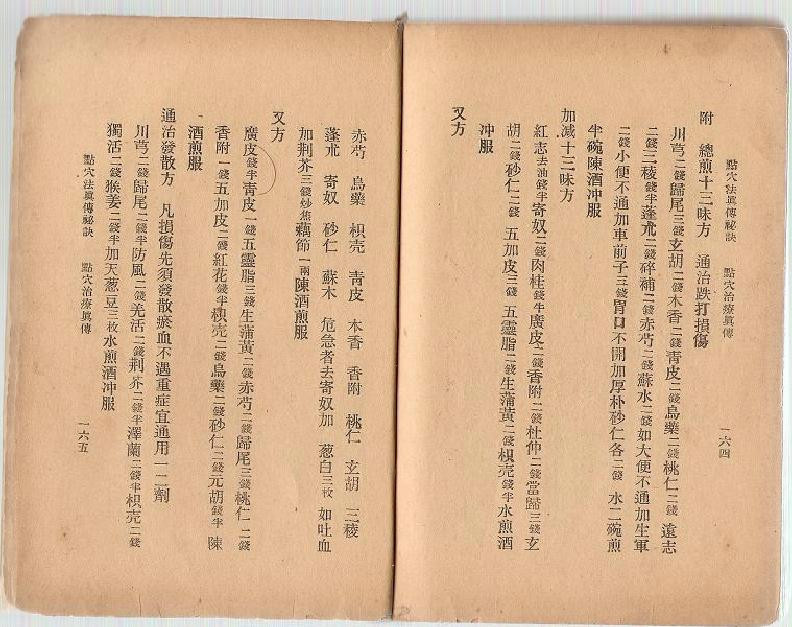 點穴法眞傳祕訣　點穴治療眞傳　一六四
附　總煎十三味方　通治跌打損傷
川芎二錢歸尾三錢玄胡二錢木香二錢靑皮二錢烏藥二錢桃仁二錢　遠志
二錢三稜錢半蓬朮二錢碎補二錢赤芍二錢蘇水二錢如大便不通加生軍
二錢小便不通加車前子三錢胃口不開加厚朴砂仁各二錢　水二碗煎
半碗陳酒沖服
加減十三味方
紅志去油錢半寄奴二錢肉桂錢半廣皮二錢香附二錢杜仲二錢當歸三錢玄
胡二錢砂仁二錢　五加皮三錢　五靈脂二錢生蒲黃二錢枳壳錢半水煎酒
沖服
又方
赤芍　烏藥　枳壳　靑皮　木香　香附　桃仁　玄胡　三稜
蓬朮　寄奴　砂仁　蘇木　危急者去寄奴加　葱白三枚　如吐血
加荆芥三錢炒焦藕節一兩陳酒煎服
又方
廣皮錢半靑皮一錢五靈脂三錢生蒲黃二錢赤芍二錢歸尾三錢桃仁二錢
香附一錢五加皮二錢紅花錢半枳壳二錢烏藥二錢砂仁二錢元胡錢半　陳
酒煎服
通治發散方　凡損傷先須發散瘀血不過重症宜通用一二劑
川芎二錢歸尾二錢半防風二錢羌活二錢荆芥二錢半澤蘭二錢半枳壳二錢
獨活二錢猴姜二錢半加天葱豆三枚水煎酒沖服
點穴法眞傳祕訣　點穴治療眞傳　一六五